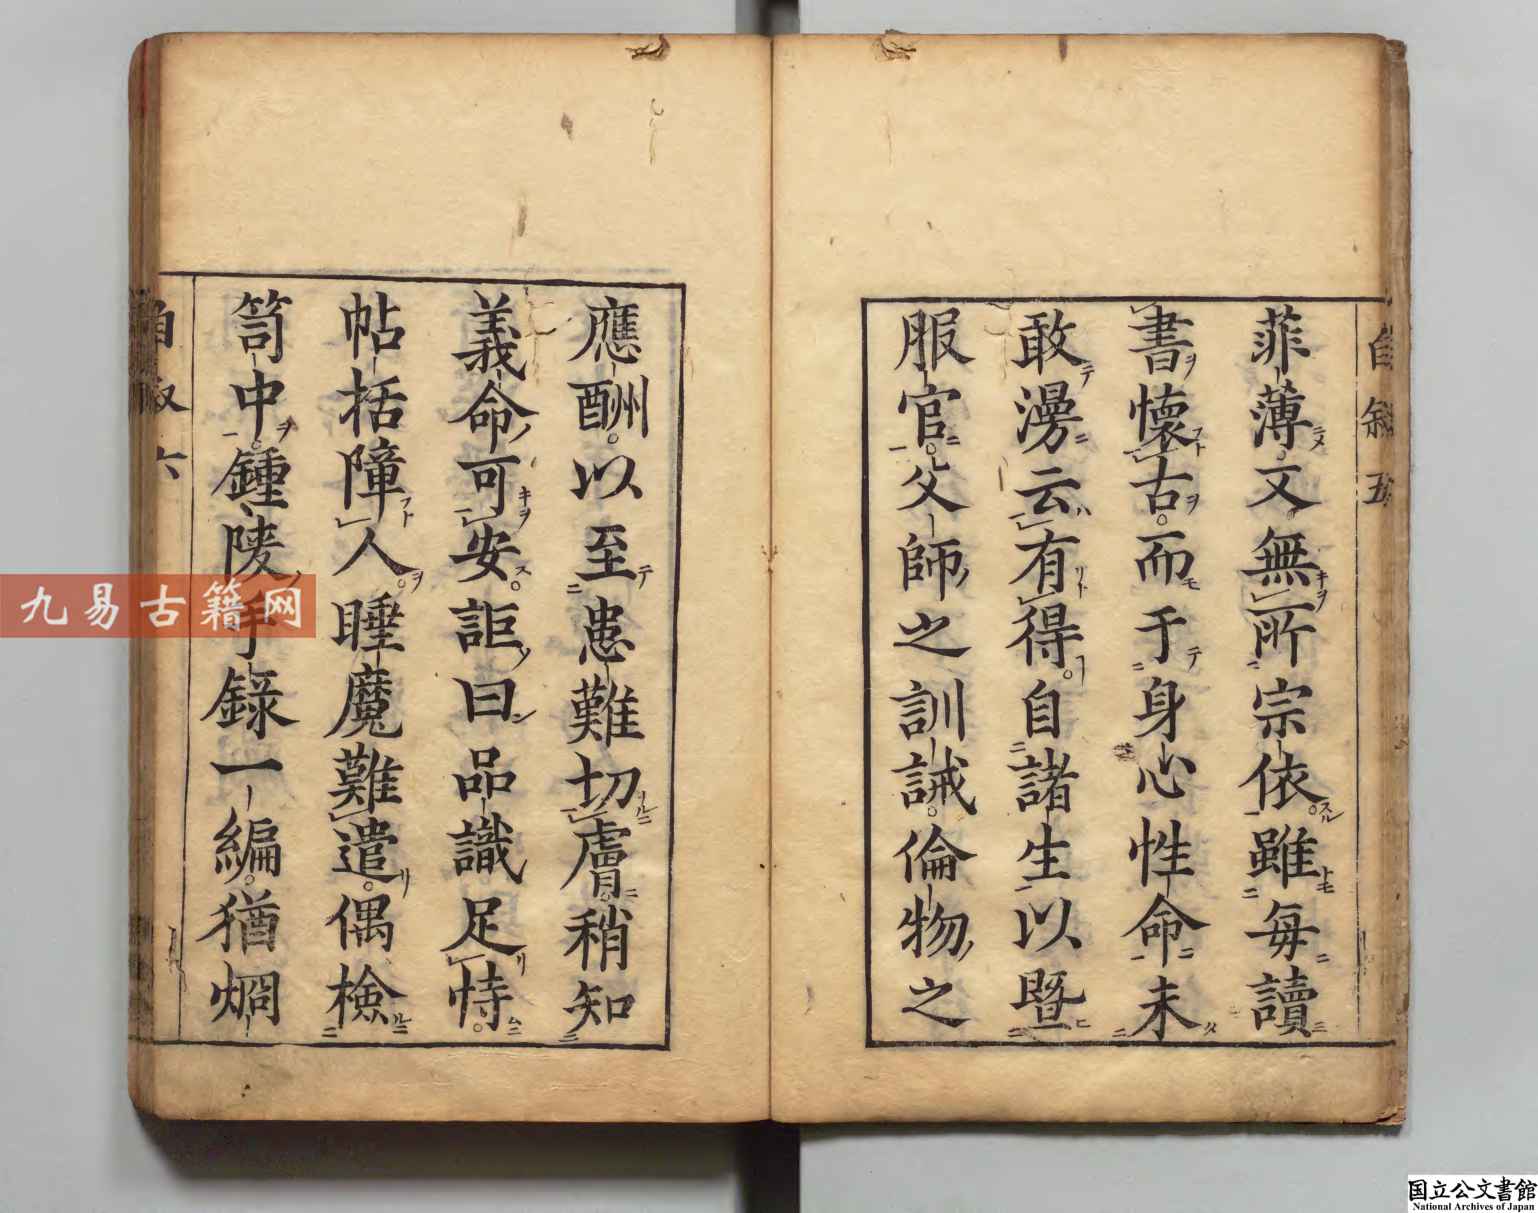 自叙 五
菲薄又無所宗依雖毎讀
書懷古而于身心性命未
敢漫云有得自諸生以暨
服官父師之訓誡倫物之
應酬以至患難切膚稍知
義命可安詎曰品識足恃
帖括障人睡魔難遣偶檢
笥中鍾陵手錄一編猶烱
自叙 六
九易古籍网
国立公文書館
National Archives of Japan